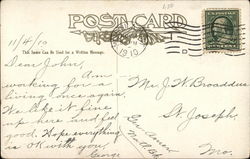 POST CARD
1910
11/4/10
This Space Can Be Used for a Written Message.
Dear John,
Am
working for a
living once again.
We like it fine
up here and feel
good. Hope everything
is OK with you.
George
Mr J. W. Broaddus
St. Joseph,
Mo.